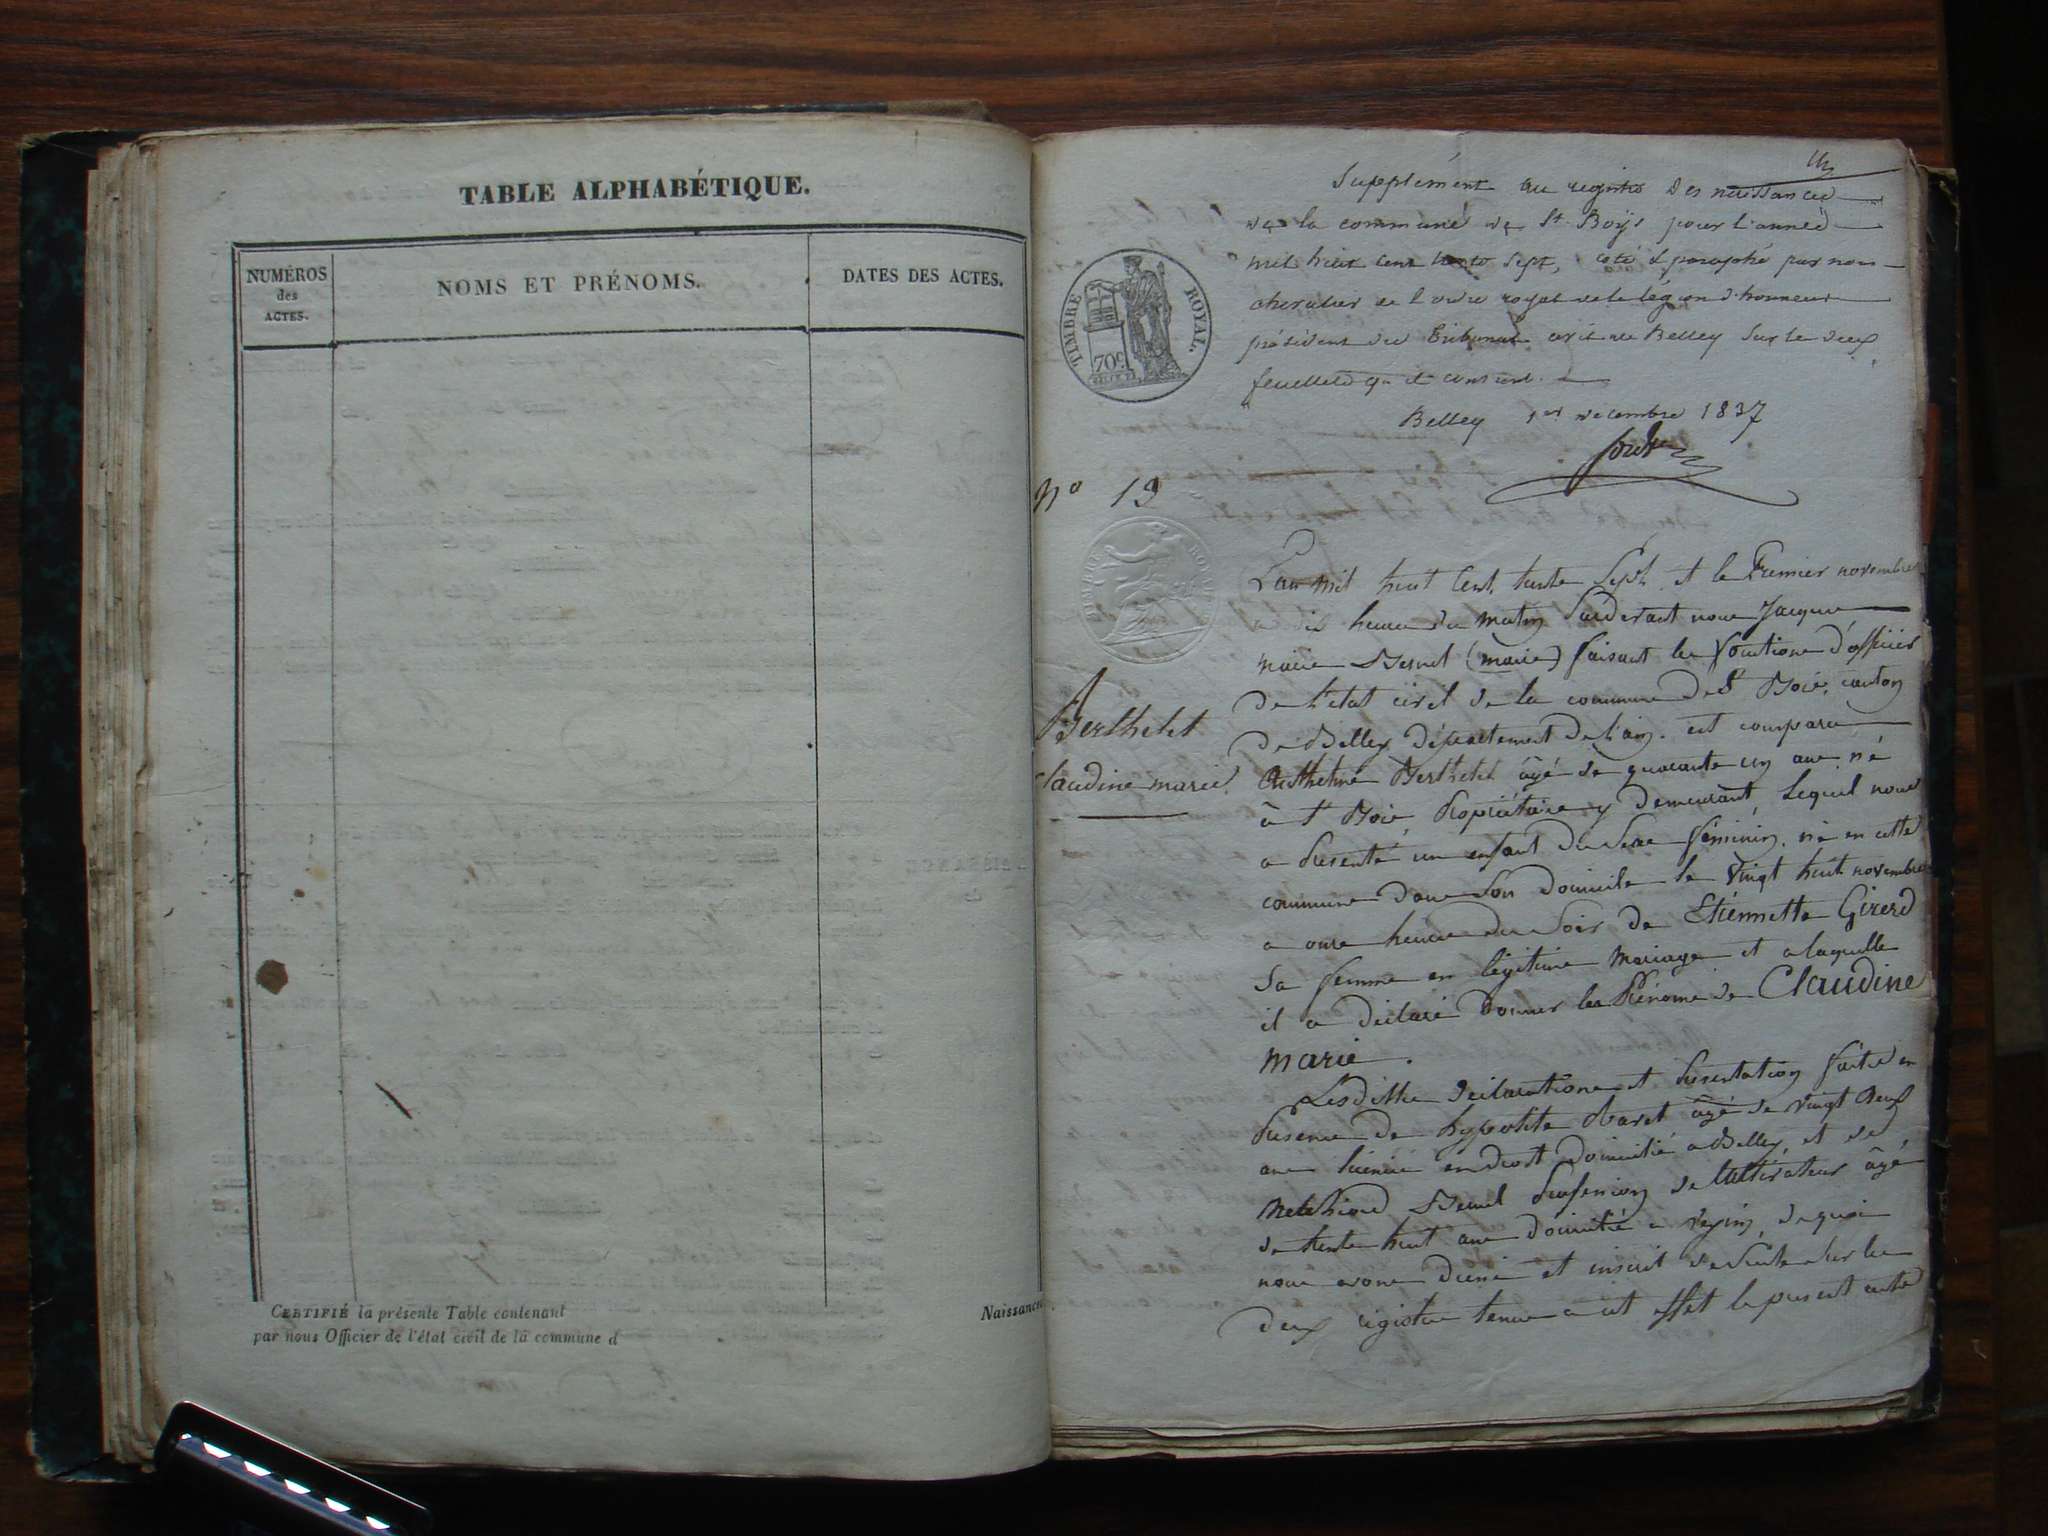 TABLE ALPHABÉTIQUE.
NUMÉROS
des
ACTES.
NOMS ET PRÉNOMS.
DATES DES ACTES.
CERTIFIÉ la présente Table contenant
par nous Officier de l'état civil de la commune d
Naissance
Supplément au registre des naissances
de la commune de St Boys pour l'année
mil huit cent trente sept, coté & paraphé par nous
chevalier de l'ordre royal de la légion d'honneur
président du Tribunal civil de Belley sur le deux
feuillets qu'il contient.
TIMBRE ROYAL.
70c.
Belley 1er decembre 1837
No 13
L'an mil huit Cent trente Sept et le Premier novembre
a dix heure du matin Pardevant nous Jacque
marie (marie) faisant les fonctions d'officier
de l'état civil de la commune de St Bois, canton
de Belley département de l'ain. est comparu
Berthelet
Claudine marie.
Anthelme Berthelet âgé de quarante un ans né
à St Bois Propriétaire y demeurant, Lequel nous
a Presenté un enfant du Sexe féminin, né en cette
commune dans Son domicile le vingt huit novembre
a onze heure du Soir de Etiennette Girerd
Sa femme en légitime mariage et a laquelle
il a déclaré donner les Prénoms de Claudine
marie.
Lesditte déclarations et Presentation faites en
Presence de hypolite âgé de vingt deux
ans licencié en droit domicilié a Belley, et de
Melchiord profession de littérateur âgé
de trente huit ans domicilié a de quoi
nous avons et inscrit de Suite Sur les
deux régistre tenus a cet effet le present acte